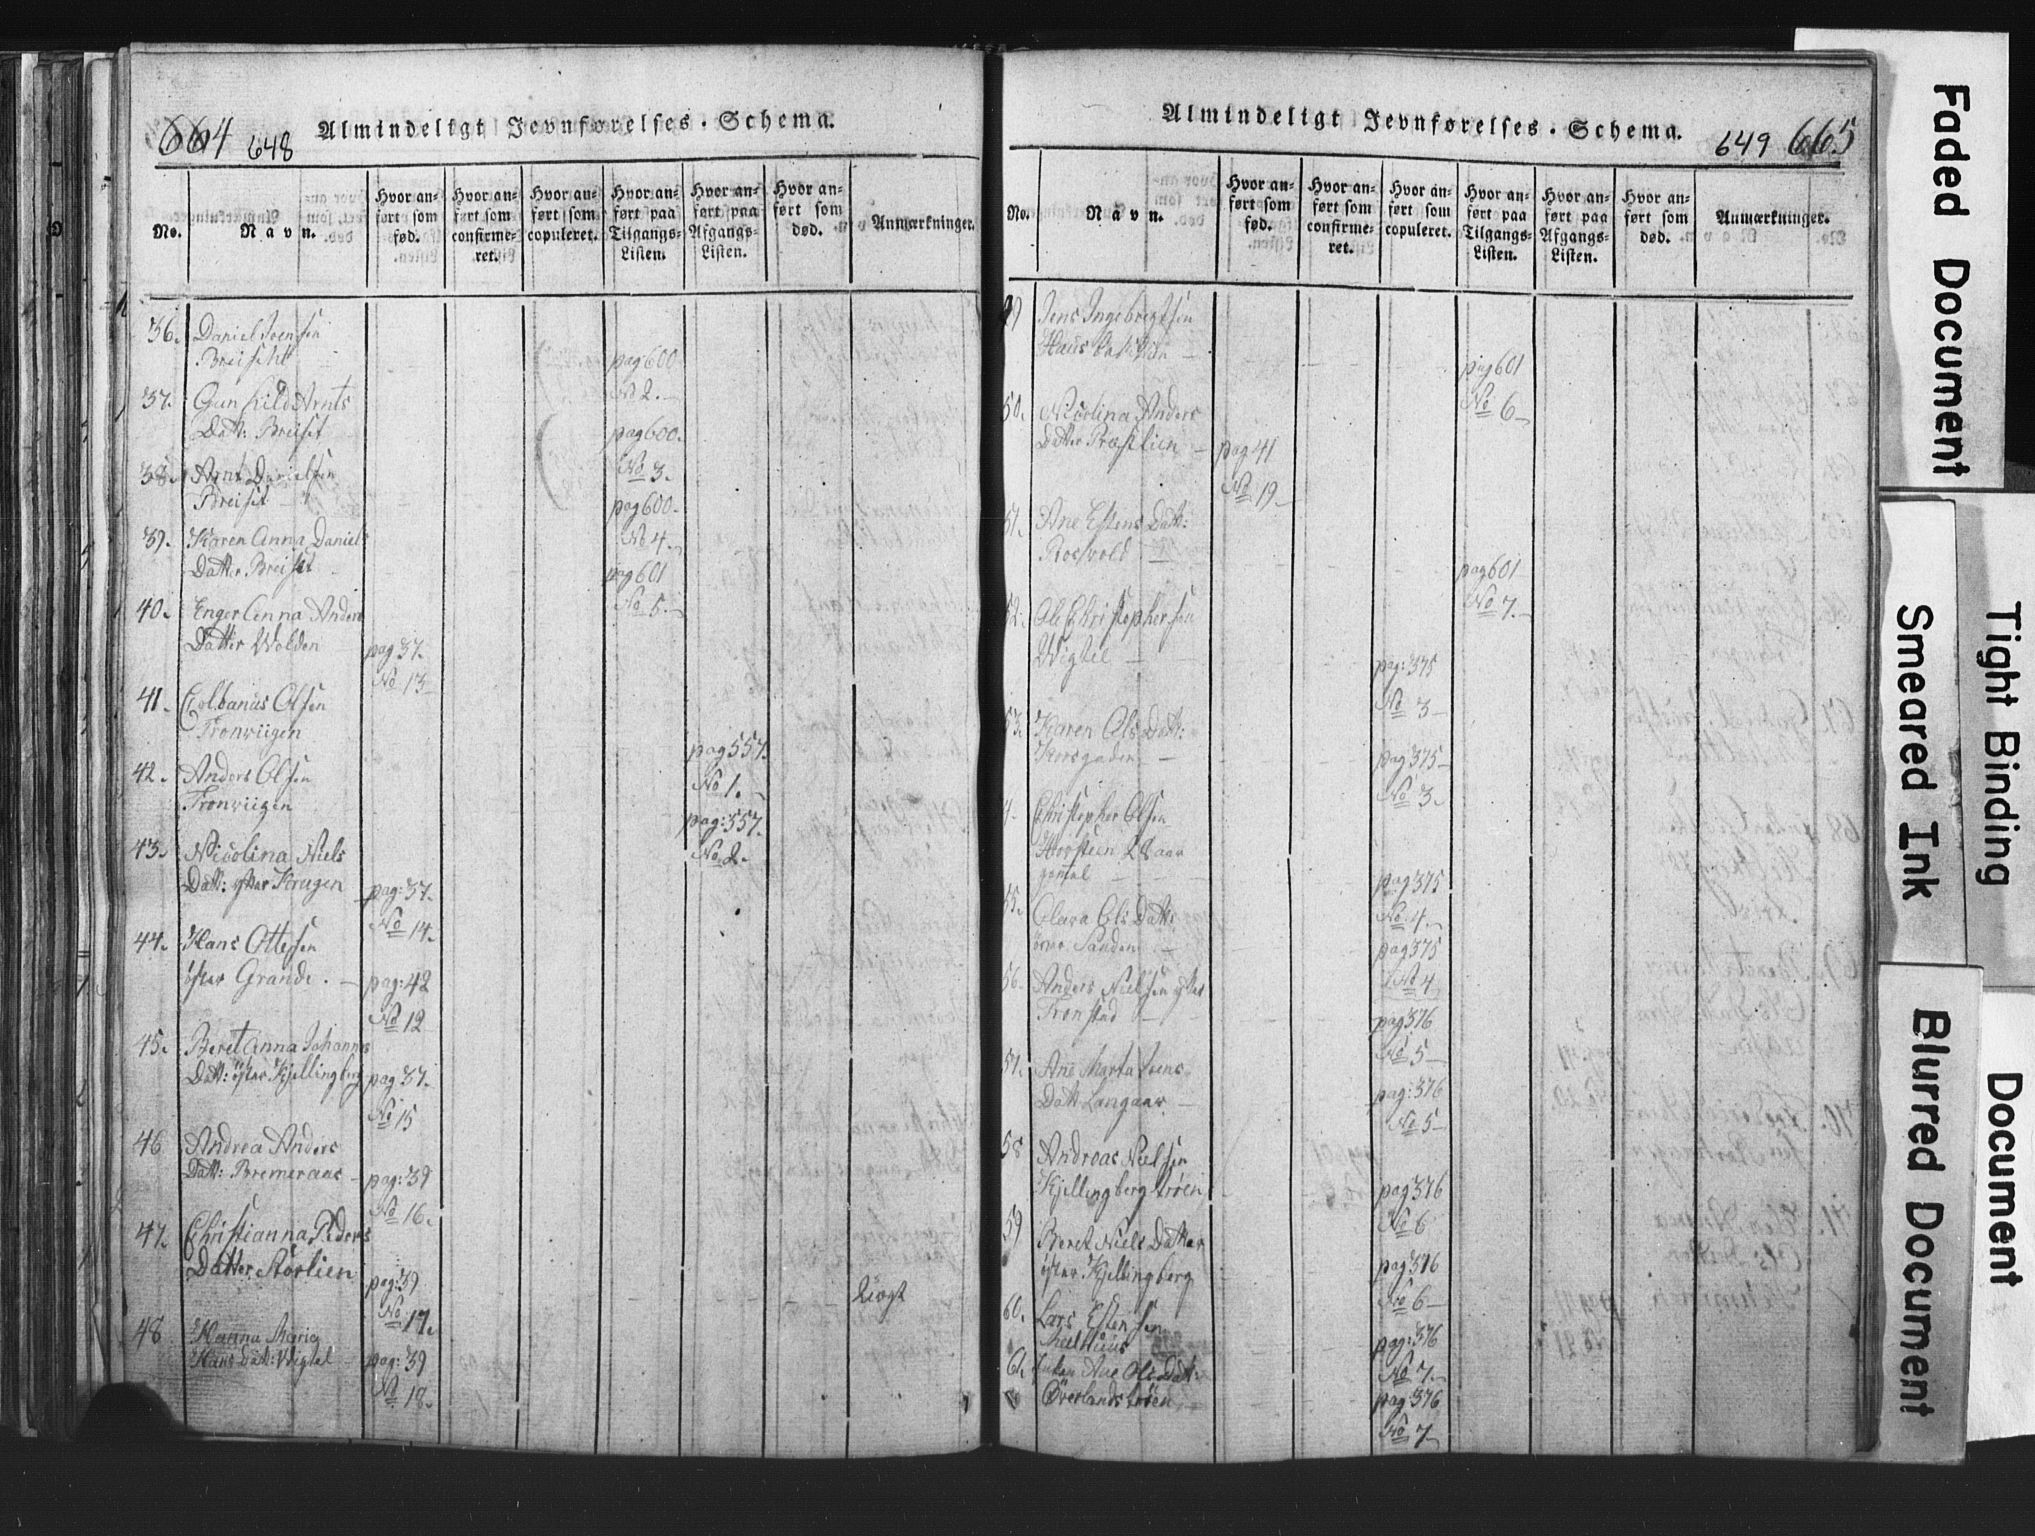 664 648 Almindeligt Jevnførelses-Schema.
No. Navn. Hvor anført som fød. Hvor anført som confirmeret. Hvor anført som copuleret. Hvor anført paa Tilgangs-Listen. Hvor anført paa Afgangs-Listen. Hvor anført som død. Anmærkninger.
36. Daniel Ivensen
Breiseht pag 600
37. Gunhild Arnts No 2.
Datt: Breiset pag 600.
38. Arnt Danielsen No 3.
Breiset pag 600.
39. Karen Anna Daniels No 4.
Datter Breiset pag 601
40. Enger Anna Anders No 5.
Datter Wolden pag 37.
No 13
41. Colbanus Olsen
Tronviigen pag 557.
42. Anders Olsen No 1.
Tronviigen pag: 557.
43. Nicolina Niels No 2.
Datt: yster Krugen pag: 37.
No 14.
44. Hans Ottesen
yster Grande. pag: 42
No 12
45. Beret Anna Johannes
Datt: yster Kjellingberg pag 37.
No 15
46 Andrea Anders
Datt: Bremeraas pag: 39
No 16.
47. Christianna Peders
Datter Störlien pag: 39
No 17.
48 Hanna Maria
Hans Datt: Wigtel pag: 39
No 18.
Almindeligt Jevnførelses-Schema. 649 665
No. Navn. Hvor anført som fød. Hvor anført som confirmeret. Hvor anført som copuleret. Hvor anført paa Tilgangs-Listen. Hvor anført paa Afgangs-Listen. Hvor anført som død. Anmærkninger.
49 Jens Ingebregtsen
pag 601
50. Nicolina Anders No 6
Datter Præstlien pag 41
No 19
51. Ane Estens Datt:
Rosvold pag 601
52. Ole Christophersen No 7.
Wigtel pag: 375
No 3
53. Karen Ols Datt:
Korsgaden pag 375
No 3.
4. Christopher Olsen
pag 375
55. Clara Ols Datt: No 4.
Sanden pag 375
56. Anders Nielsen yster No 4
Tronstad pag 376
No 5
57. Ane Marta Ivens
Datt: Langaar pag: 376
No 5
58 Andreas Nielsen
Kjellingberg trøen pag 376
No 6
59 Beret Niels Datter
yster Kjellingberg pag 376
No 6
60. Lars Estensen
pag: 376
No 7.
61. Ane Ols Datt:
Överlands trøen pag 376
No 7
Faded Document
Tight Binding
Smeared Ink
Blurred Document
Document